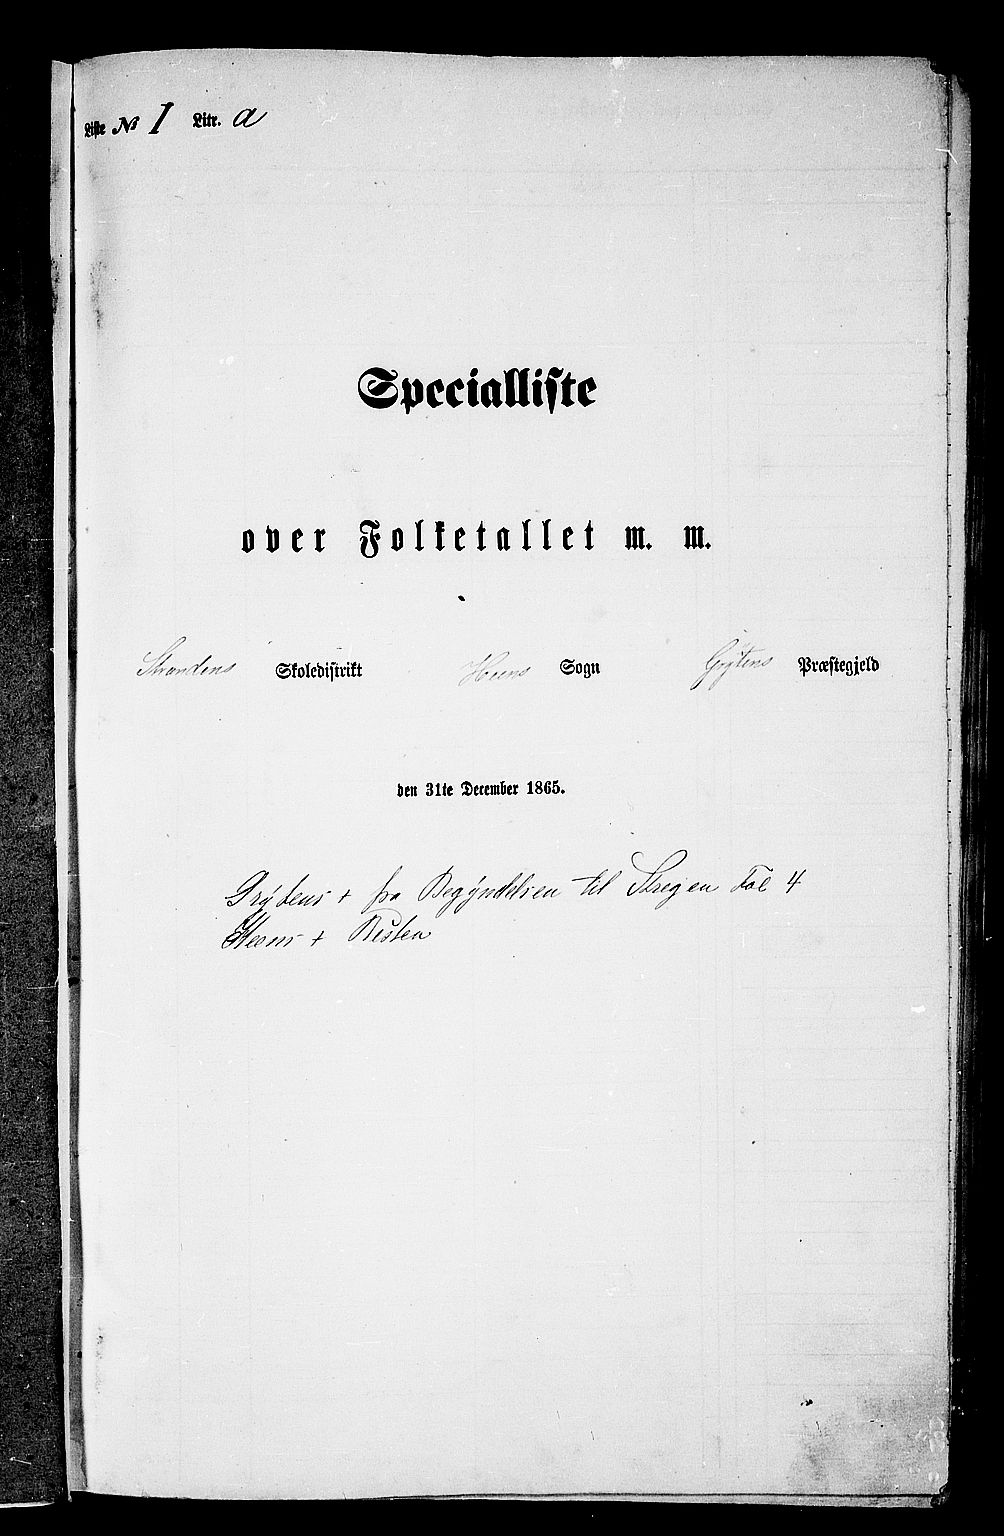 Liste No 1 Litr. a
Specialliste
over Folketallet m. m.
Strandens Skoledistrikt Heens Sogn Grytens Præstegjeld
den 31te December 1865.
Grydens + fra Begyndelsen til Stregen Fol 4
Heens + Resten